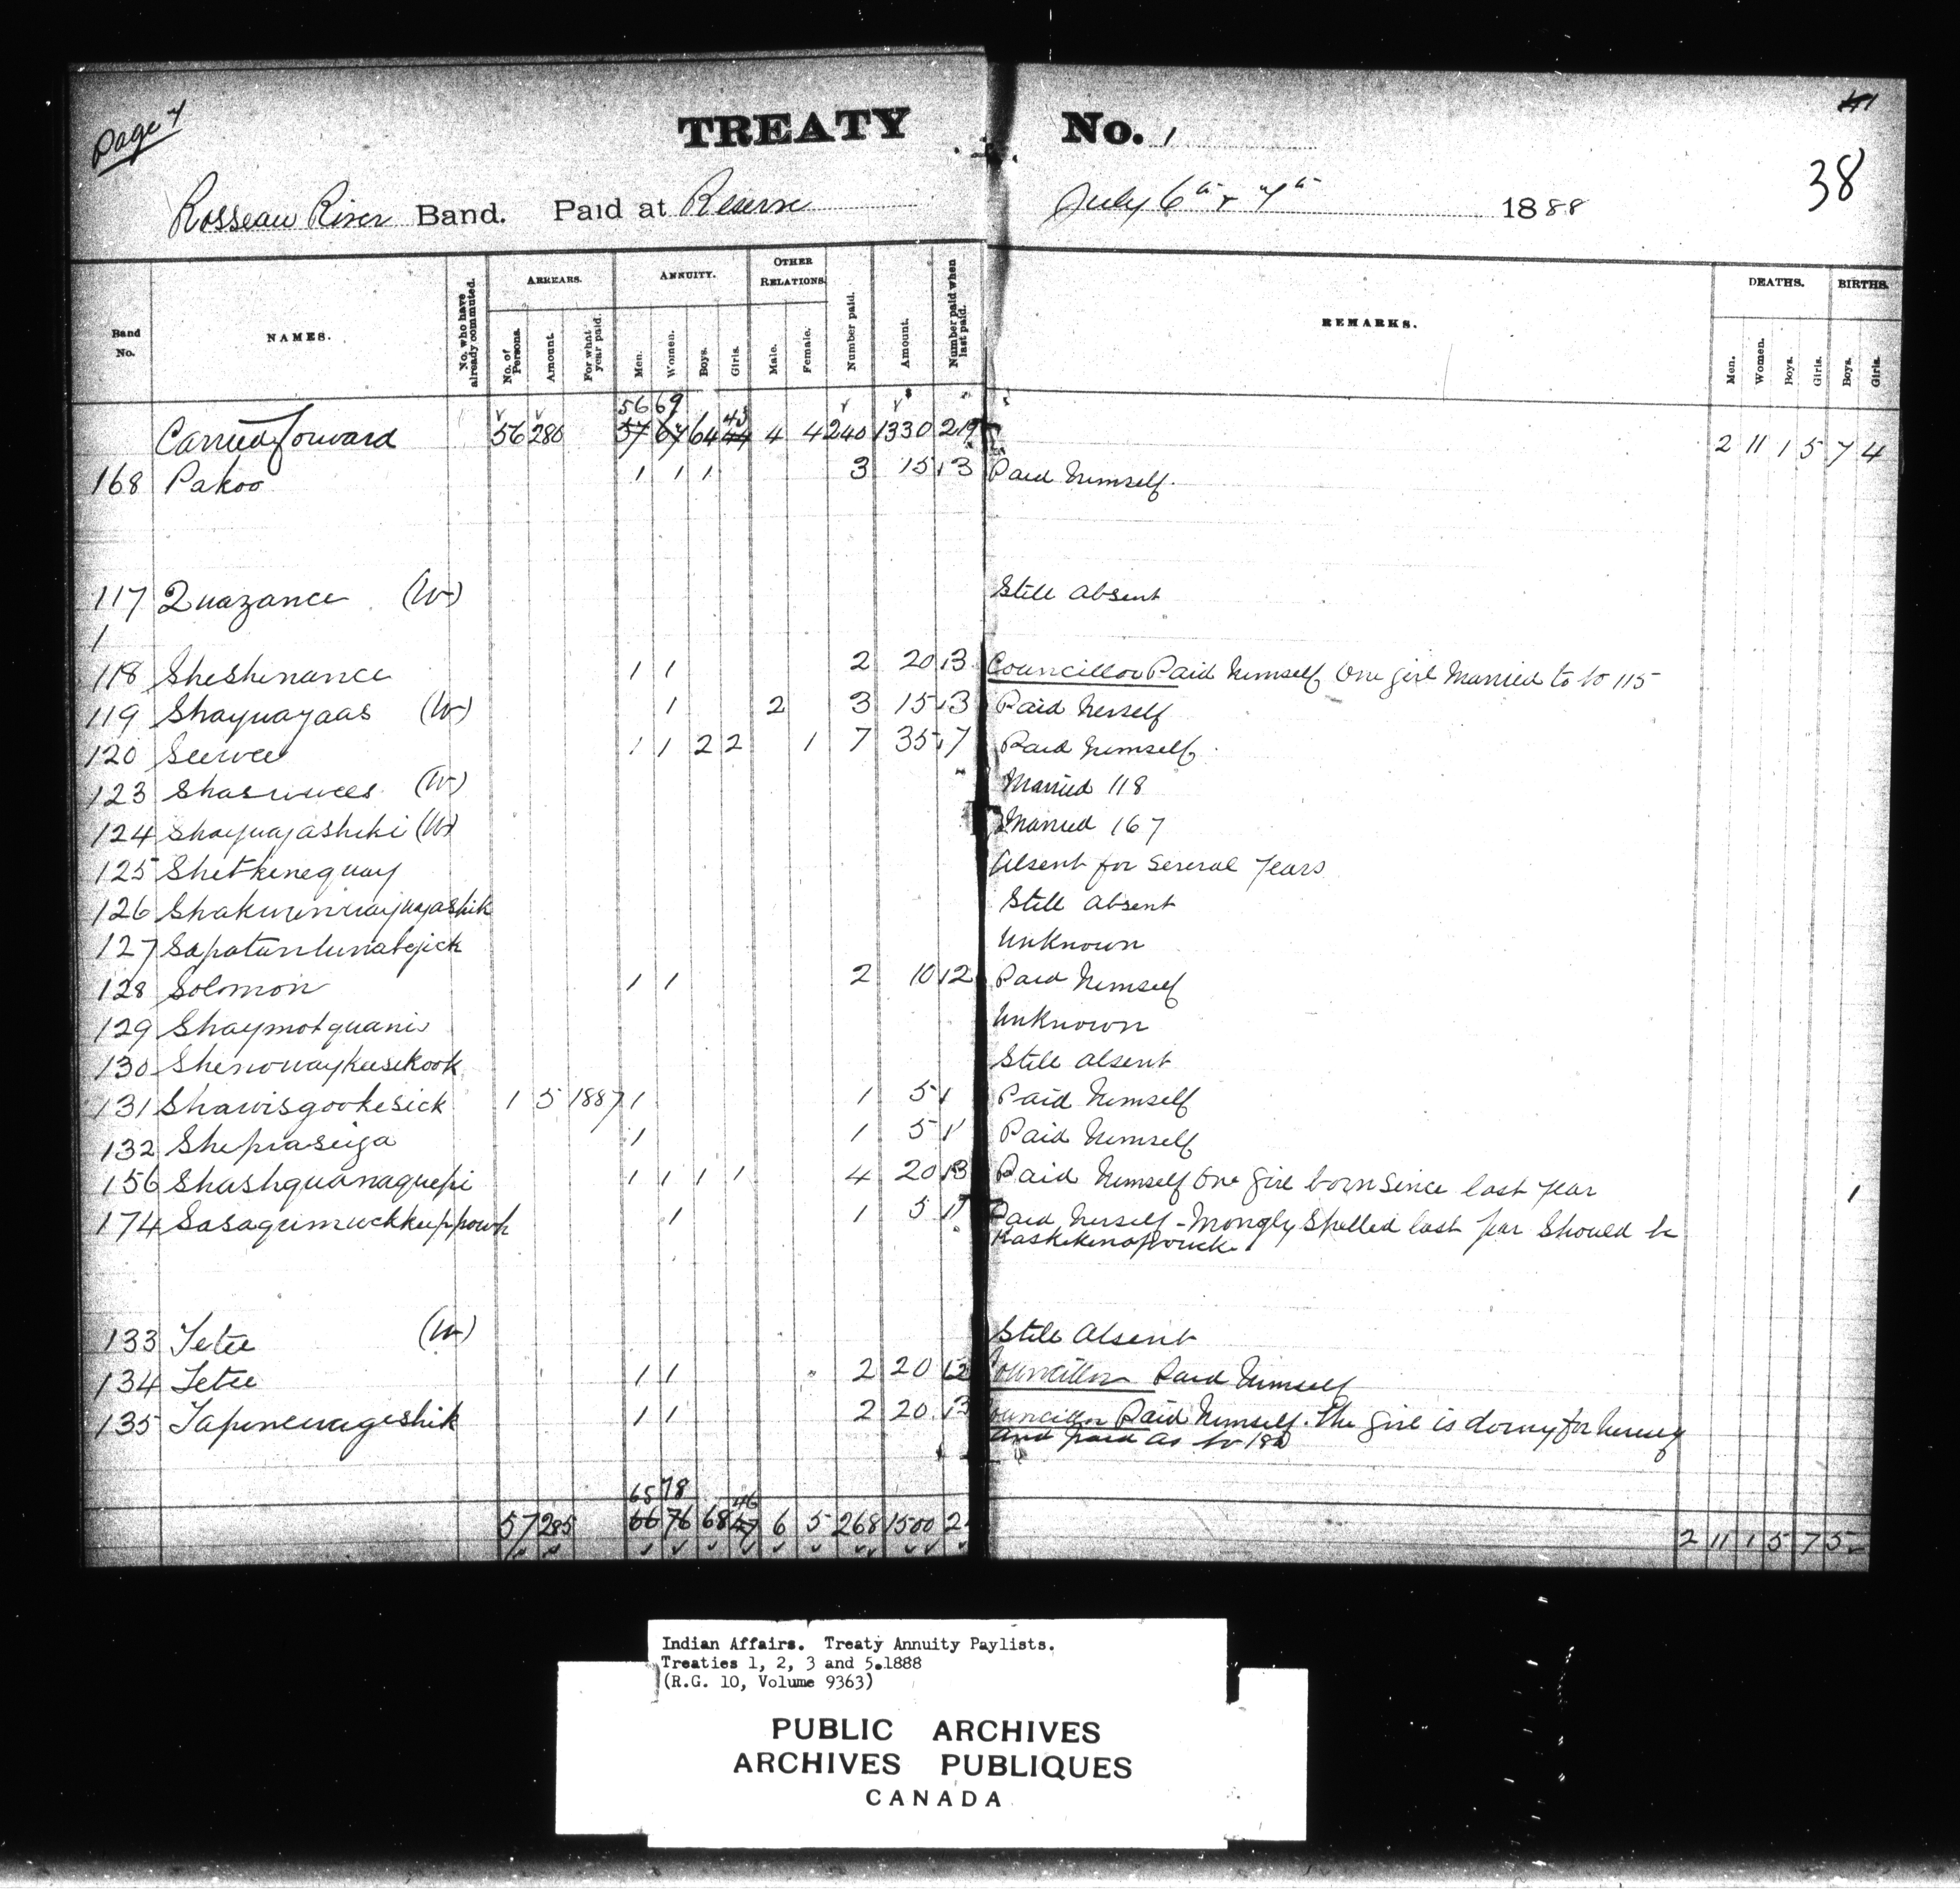 Page 7
TREATY No. 1
41
38
Rosseau River Band. Paid at Reserve July 6th & 7th 1888
Band No. NAMES. No. who have already commuted. ARREARS. No. of Persons. Amount. For what year paid. ANNUITY. Men. Women. Boys. Girls. OTHER RELATIONS. Male. Female. Number paid. Amount. Number paid when last paid. REMARKS. DEATHS. Men. Women. Boys. Girls. BIRTHS. Boys. Girls.
56 69 43
Carried forward 56 280 57 67 64 44 4 4 240 1330 219 2 11 1 5 7 4
168 Pakoo 1 1 1 3 15 3 Paid himself.
117 Quazance (W) Still absent
1
118 Sheshenance 1 1 2 20 3 Councillor Paid himself One girl Married to No 115
119 Shayuayaas (W) 1 2 3 15 3 Paid herself
120 Seewee 1 1 2 2 1 7 35 7 Paid himself.
123 (W) Married 118
124 Shayuayashiki (W) Married 167
125 Shetkenequay Absent for several years
126 Still absent
127 Unknown
128 Solomon 1 1 2 10 2 Paid himself
129 Shaymotquanis Unknown
130 Shenowaykeesikook Still absent
131 Shawisgookesick 1 5 1887 1 1 5 1 Paid himself
132 Shepiaseiga 1 1 5 1 Paid himself
156 Shashquanaquepi 1 1 1 1 4 20 3 Paid himself One girl born since last year 1
174 Sasagumuckkeeppowk 1 1 5 1 Paid herself - Wrongly spelled last year should be
Kaskikenapouick
133 Tetee (W) Still absent
134 Tetee 1 1 2 20 2 Councillor Paid himself
135 Tapinewageshik 1 1 2 20 3 Councillor Paid himself. The girl is doing for herself
and paid as No 180
65 78 46
57 285 66 76 68 47 6 5 268 1500 2 2 11 1 5 7 5
Indian Affairs. Treaty Annuity Paylists.
Treaties 1, 2, 3 and 5.1888
(R.G. 10, Volume 9363)
PUBLIC ARCHIVES
ARCHIVES PUBLIQUES
CANADA